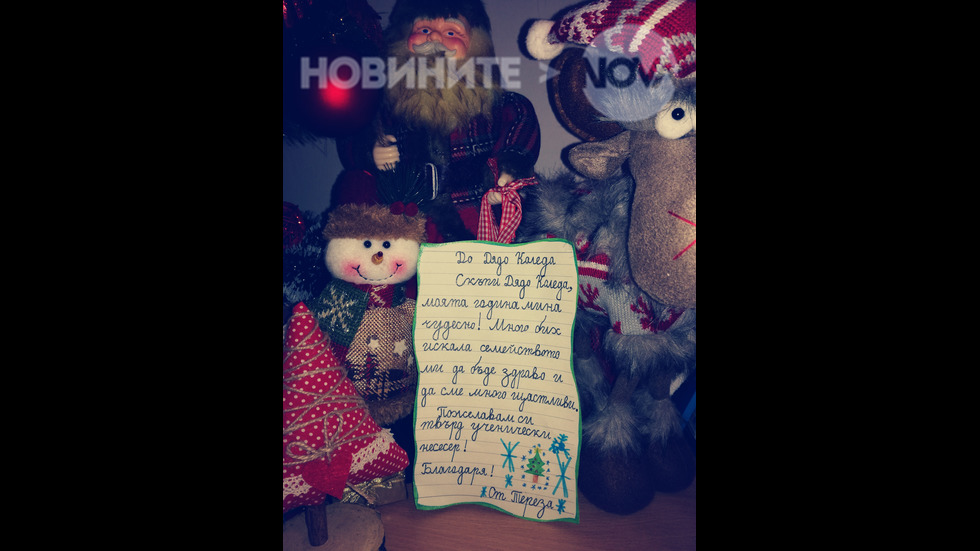 НОВИНИТЕ > NOVA
До Дядо Коледа
Скъпи Дядо Коледа,
моята година мина
чудесно! Много бих
искала семейството
ми да бъде здраво и
да сме много щастливи.
Пожелавам си
твърд ученически
несесер!
Благодаря!
От Тереза